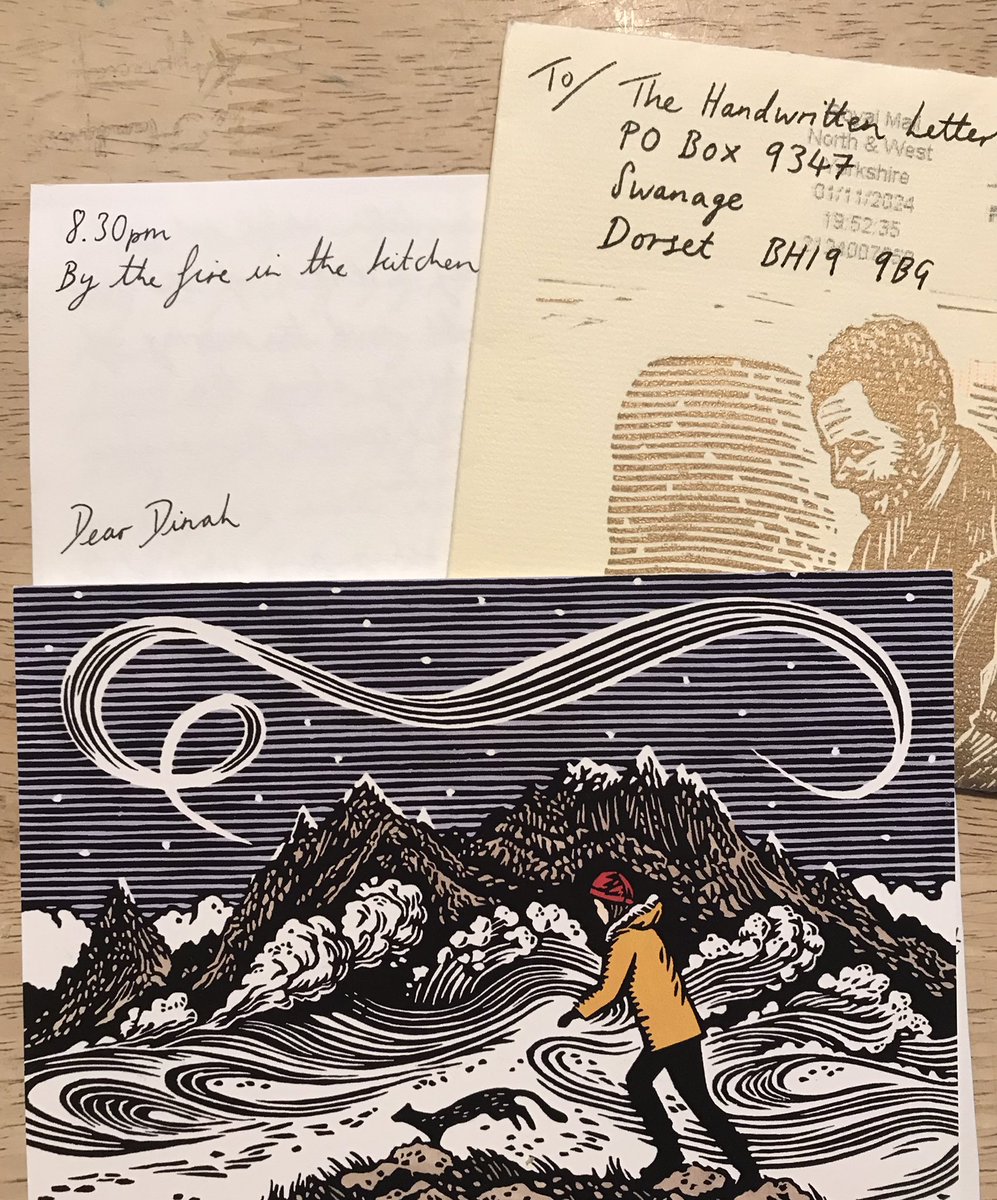 To/ The Handwritten Letter
PO Box 9347
Swanage
Dorset BH19 9BG
Royal Mail
North & West
Yorkshire
01/11/2024
19:52:35
8.30pm
By the fire in the kitchen
Dear Dinah